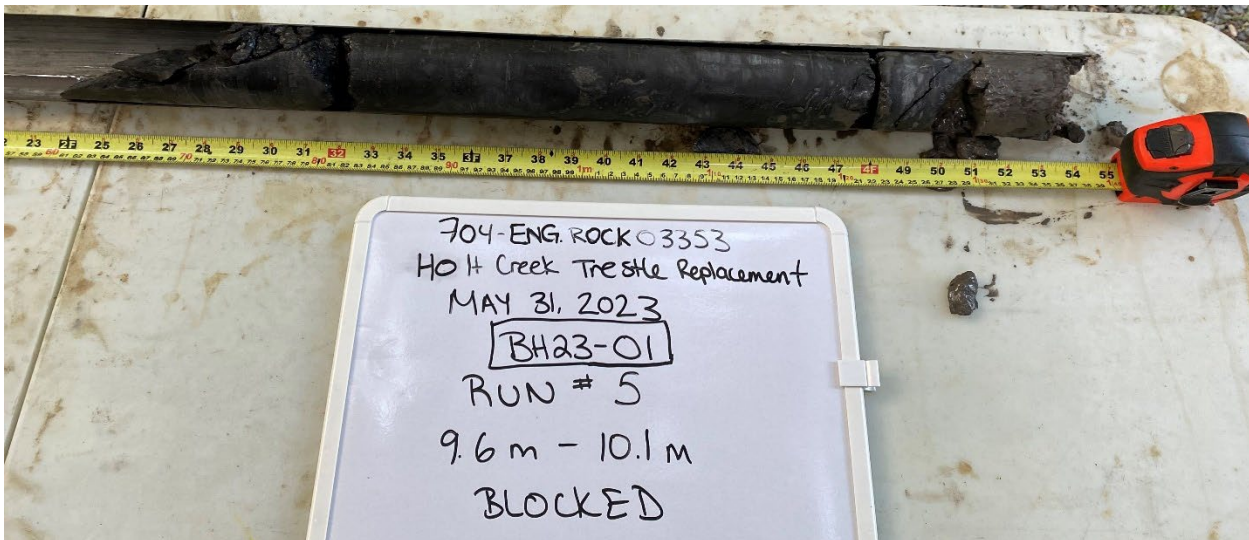 23 2F 25 26 27 28 29 30 31 32 33 34 35 3F 37 38 39 40 41 42 43 44 45 46 47 4F 49 50 51 52 53 54 55
704-ENG.ROCK03353
Holt Creek Trestle Replacement
MAY 31, 2023
BH23-01
RUN # 5
9.6 m - 10.1 m
BLOCKED